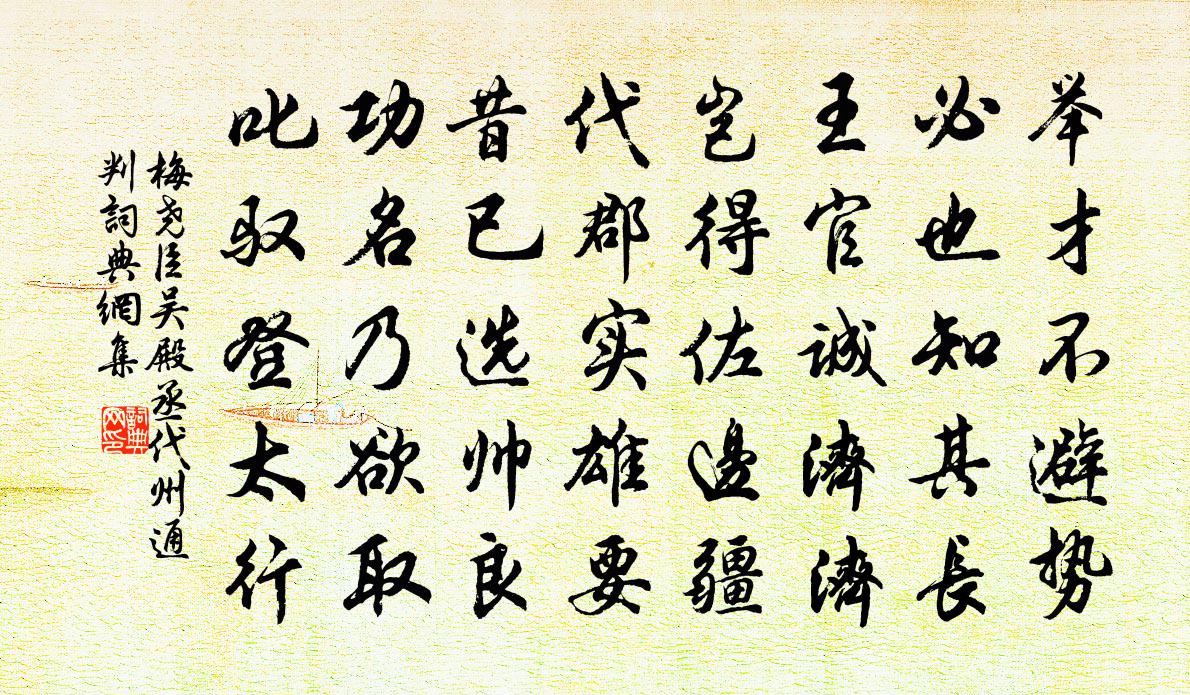 举才不避势
必也知其长
王官诚濟濟
岂得佐邊疆
代郡实雄要
昔已选帅良
功名乃欲取
叱驭登太行
梅尧臣吴殿丞代州通
判詞典網集
詞典
网印